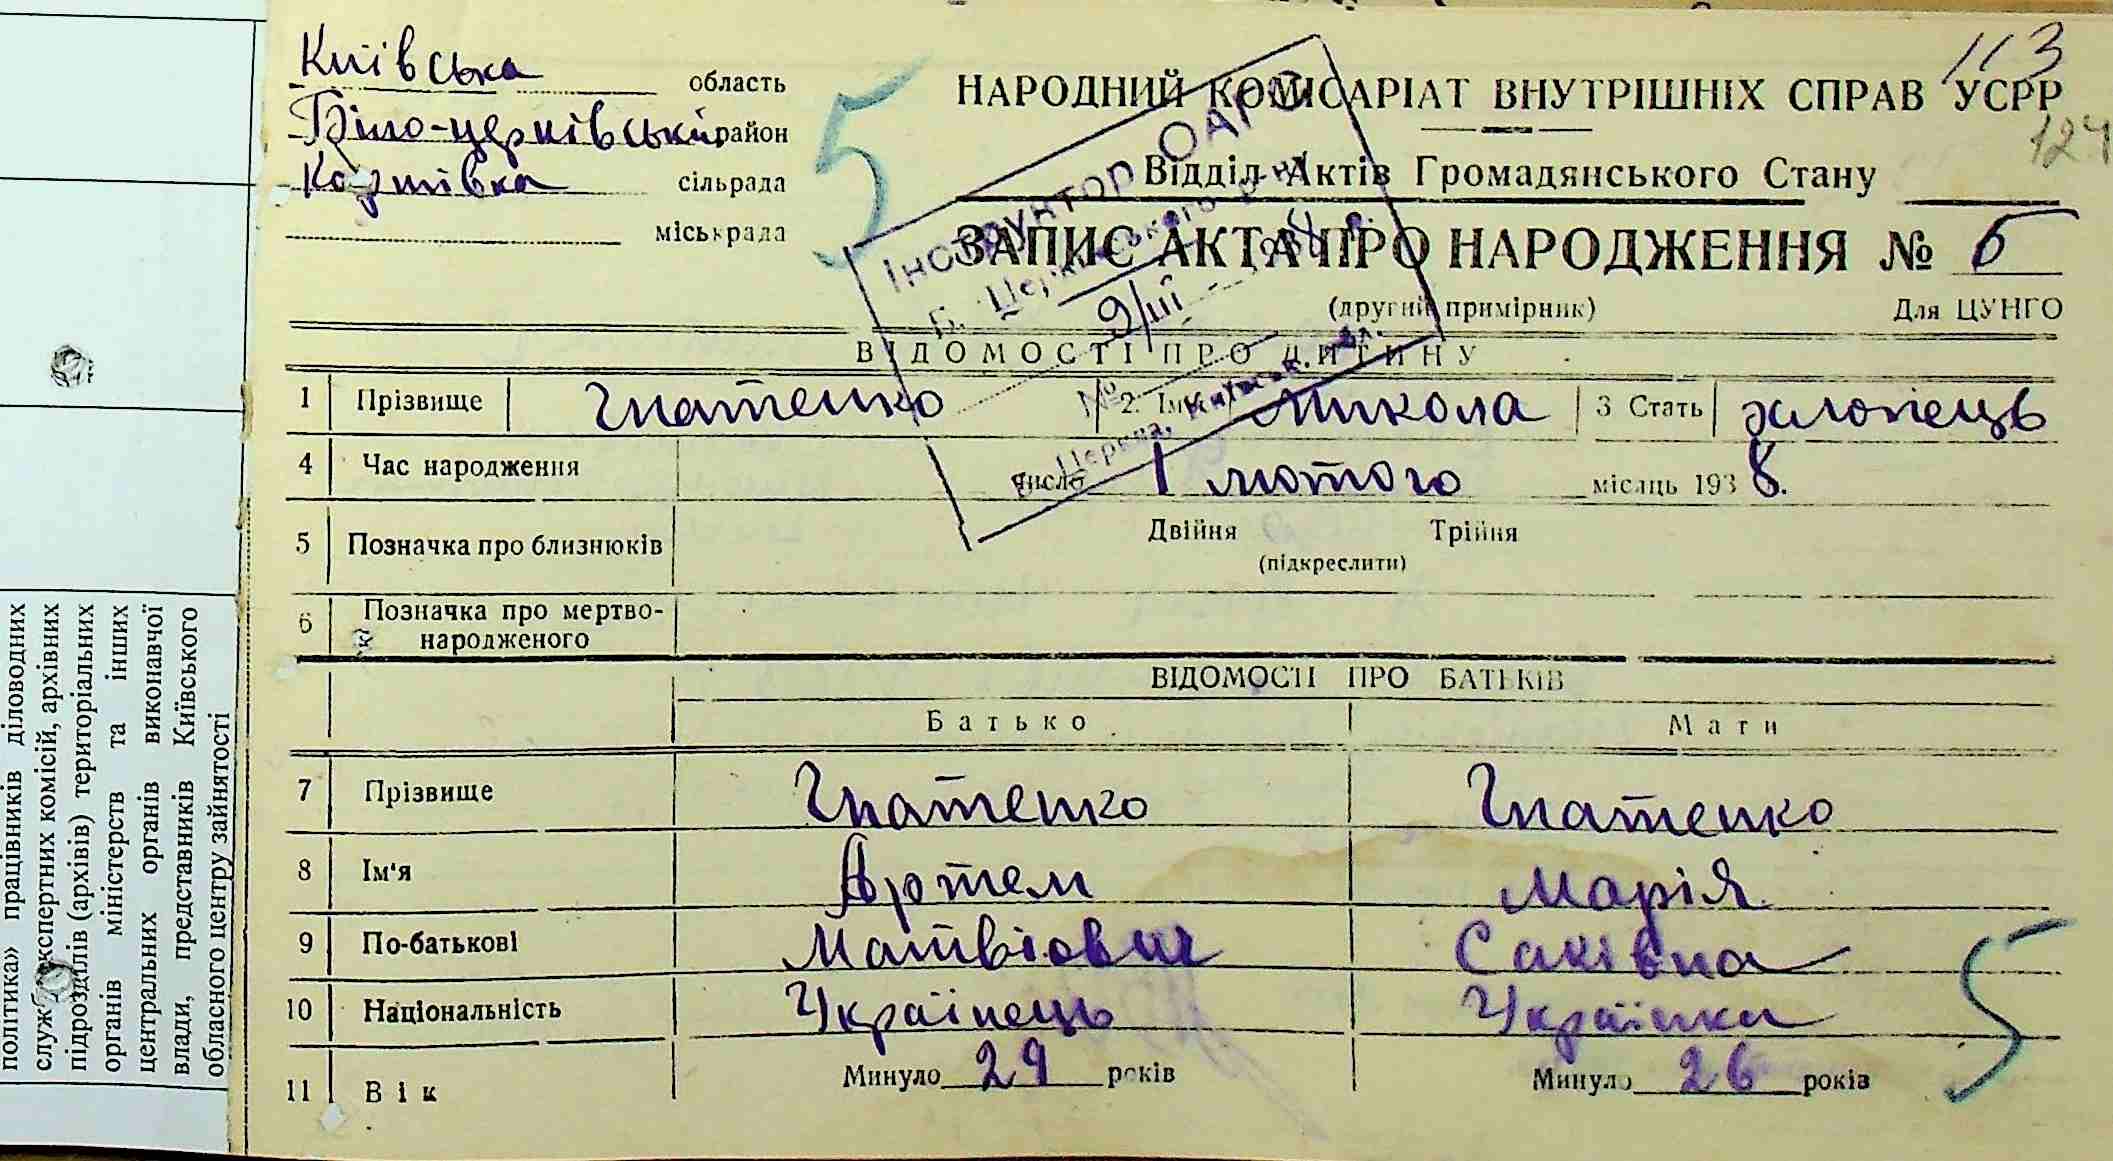 Київська область
Біло-церківський район
сільрада
міськрада
5
113
124
НАРОДНИЙ КОМІСАРІАТ ВНУТРІШНІХ СПРАВ УСРР
Відділ Актів Громадянського Стану
ЗАПИС АКТА ПРО НАРОДЖЕННЯ № 6
(другий примірник) Для ЦУНГО
Інструктор ОАГС
Б. Церківського р-ну
9/III
№
Церква, Київськ. обл.
ВІДОМОСТІ ПРО ДИТИНУ
1 Прізвище Гнатенко 2. Ім'я Микола 3 Стать хлопець
4 Час народження число 1 лютого місяць 1938.
5 Позначка про близнюків Двійня Трійня
(підкреслити)
6 Позначка про мертво-
народженого
ВІДОМОСТІ ПРО БАТЬКІВ
Батько Мати
7 Прізвище Гнатенко Гнатенко
8 Ім'я Артем Марія
9 По-батькові Матвіович Саківна
10 Національність Українець Українка
11 Вік Минуло 29 років Минуло 26 років
5
політика» працівників діловодних
служб, експертних комісій, архівних
підрозділів (архівів) територіальних
органів міністерств та інших
центральних органів виконавчої
влади, представників Київського
обласного центру зайнятості